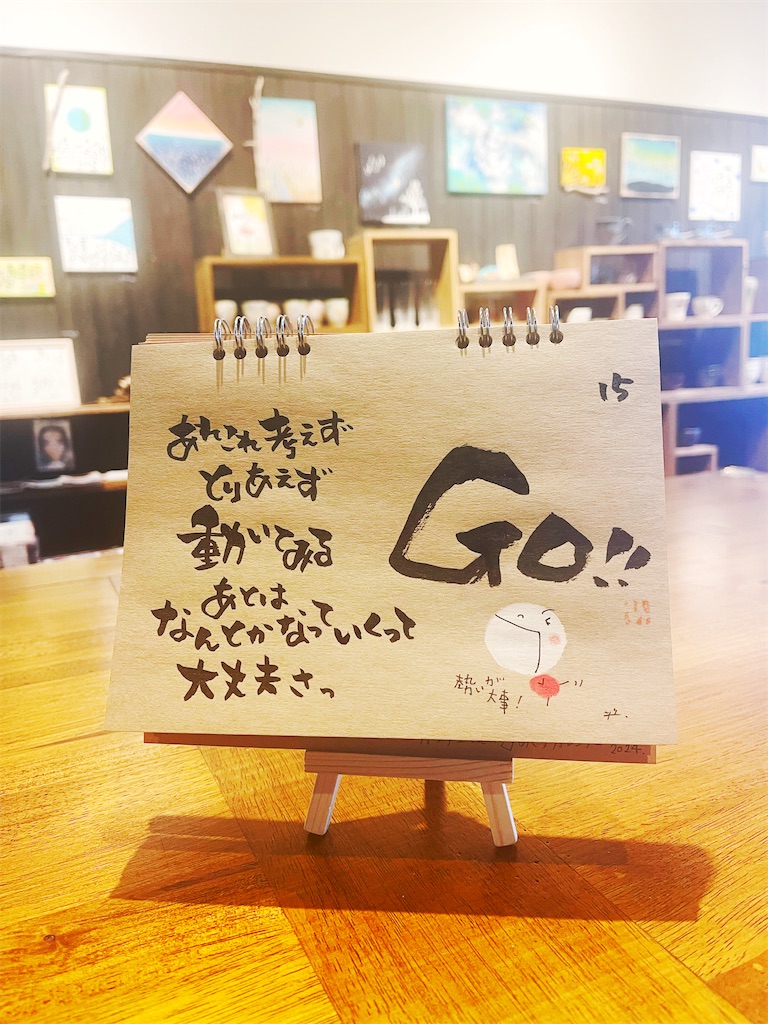 15
あれこれ考えず
とりあえず
動いてみる
あとは、
なんとかなっていくって
大丈夫さっ
Go!!
勢いが
大事!
2024.